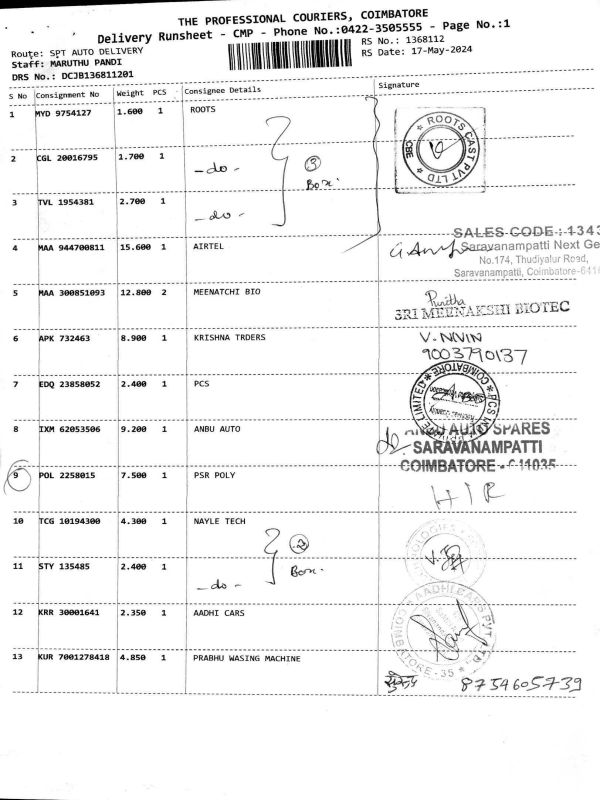 THE PROFESSIONAL COURIERS, COIMBATORE
Delivery Runsheet - CMP - Phone No.:0422-3505555 - Page No.:1
Route: SPT AUTO DELIVERY
RS No.: 1368112
Staff: MARUTHU PANDI
RS Date: 17-May-2024
DRS No.: DCJB136811201
S No Consignment No Weight PCS Consignee Details Signature
1 MYD 9754127 1.600 1 ROOTS
ROOTS CAST PVT LTD
CBE
2 CGL 20016795 1.700 1 -do- 3 Box
3 TVL 1954381 2.700 1 -do-
SALES CODE : 1343
4 MAA 944700811 15.600 1 AIRTEL
Saravanampatti Next Ge
No.174, Thudiyalur Road,
Saravanampatti, Coimbatore-6410
5 MAA 300851093 12.800 2 MEENATCHI BIO
Punitha
SRI MEENAKSHI BIOTEC
6 APK 732463 8.900 1 KRISHNA TRDERS
V. NIVIN
9003790137
7 EDQ 23858052 2.400 1 PCS
COIMBATORE
8 IXM 62053506 9.200 1 ANBU AUTO
ANBU AUTO SPARES
SARAVANAMPATTI
COIMBATORE - 641035
9 POL 2258015 7.500 1 PSR POLY
10 TCG 10194300 4.300 1 NAYLE TECH
2 Box
11 STY 135485 2.400 1 -do-
12 KRR 30001641 2.350 1 AADHI CARS
AADHI CARS PVT LTD
COIMBATORE - 35
13 KUR 7001278418 4.850 1 PRABHU WASING MACHINE
8754605739